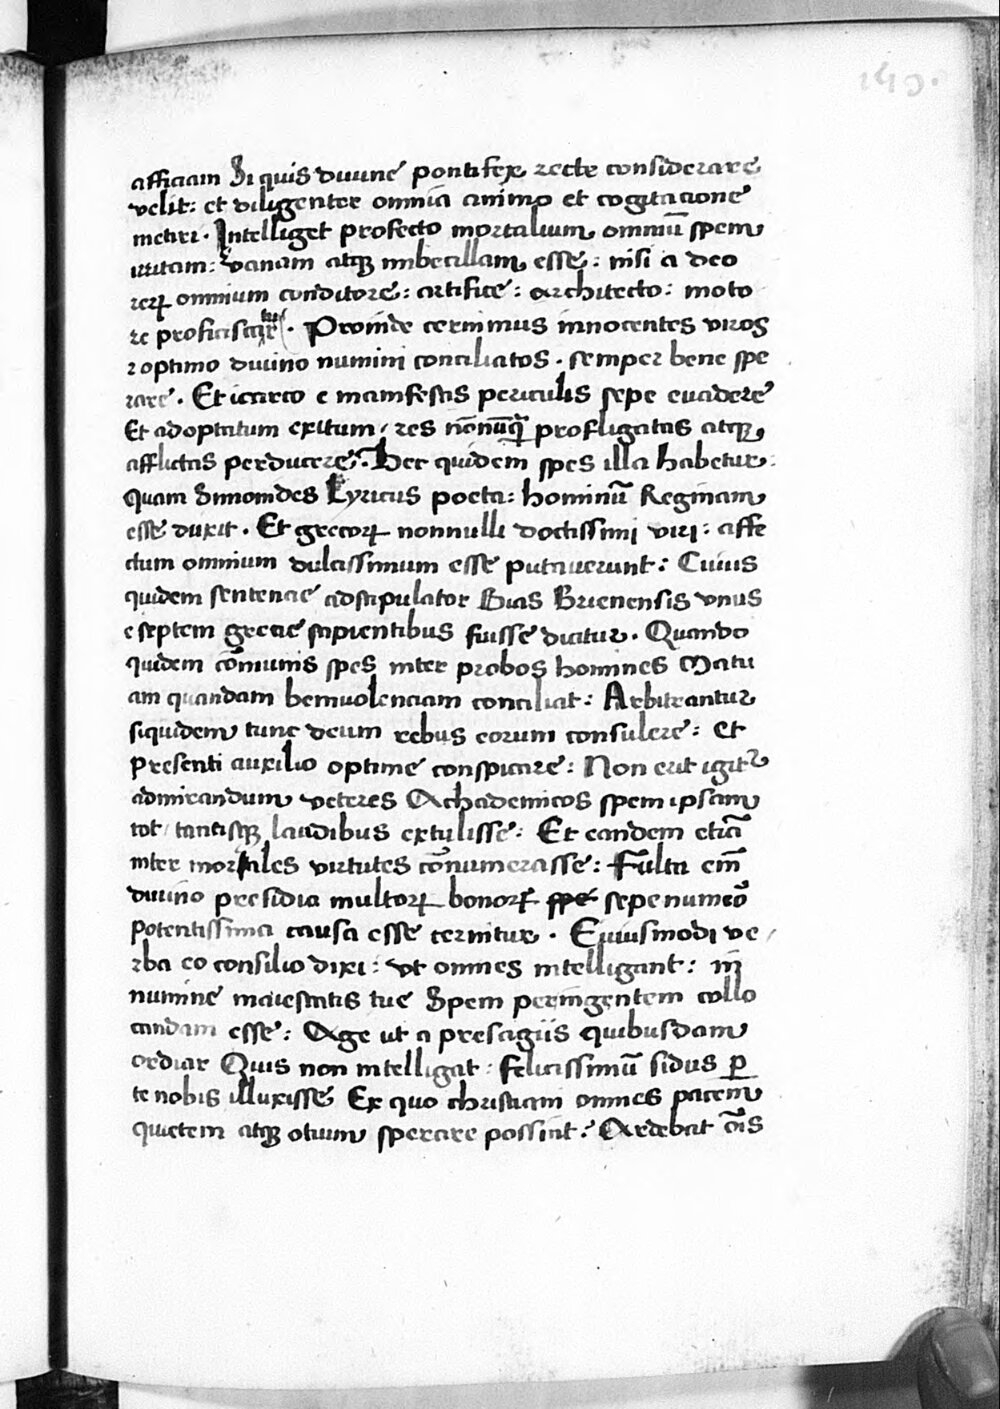 149.
afficiam Si quis diuine pontifex recte considerare
velit: et diligenter omnia animo et cogitacione
metiri. Intelliget profecto mortalium omniū spem
uitam: vanam atqꝫ imbecillam esse: nisi a deo
rerꝝ omnium conditore: artifice: architecto: moto
re proficiscatur. Proinde cernimus innocentes viros
optimo diuino numini conciliatos. semper bene spe
rare. Et icarco e manifestis periculis sepe euadere
Et adoptatum exitum / res nōnūqꝫ profligatas atqꝫ
afflictas perducere. Hec quidem spes illa habetur:
quam Simonides Lyricus poeta: hominū Reginam
esse duxit. Et grecorꝝ nonnulli doctissimi viri: affe
ctum omnium dulcissimum esse putauerunt: Cuius
quidem sentencie adstipulator Bias Brienensis vnus
e septem grecie sapientibus fuisse dicitur. Quando
quidem cōmunis spes inter probos homines Matu
am quandam beniuolenciam conciliat: Arbitrantur
siquidem tunc deum rebus eorum consulere: et
presenti auxilio optime conspirare: Non erit igitᷣ
admirandum veteres Achademicos spem ipsam
tot / tantisqꝫ laudibus extulisse: Et eandem eciā
inter mortales virtutes cōnumerasse: Fulta em̄
diuino presidio multorꝝ bonorꝝ sepenumeō
potentissima causa esse cernitur. Eiuismodi ve /
rba eo consilio dixi: vt omnes intelligant: in
numine maiestatis tue Spem peringentem collo
candam esse: Age ut a presagiis quibusdam
ordiar Quis non intelligat: felicissimū sidus ꝑ
te nobis illuxisse Ex quo christiani omnes pacem
quietem atqꝫ otium sperare possint: Ardebat oīs